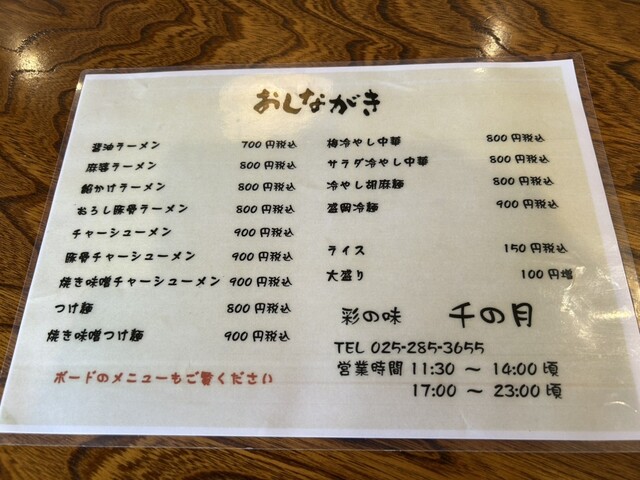 おしながき
醤油ラーメン 700円税込
麻婆ラーメン 800円税込
餡かけラーメン 800円税込
おろし豚骨ラーメン 800円税込
チャーシューメン 900円税込
豚骨チャーシューメン 900円税込
焼き味噌チャーシューメン 900円税込
つけ麺 800円税込
焼き味噌つけ麺 900円税込
ボードのメニューもご覧ください
梅冷やし中華 800円税込
サラダ冷やし中華 800円税込
冷やし胡麻麺 800円税込
盛岡冷麺 900円税込
ライス 150円税込
大盛り 100円増
彩の味 千の月
TEL 025-285-3655
営業時間 11:30 ~ 14:00頃
17:00 ~ 23:00頃